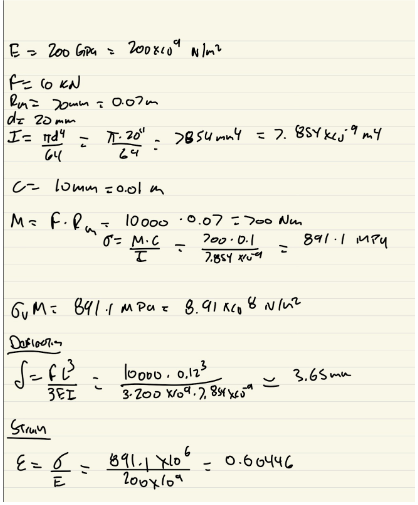 E = 200 GPa = 200x10⁹ N/m²
F = 10 kN
Rm = 70mm = 0.07m
d = 20mm
I = πd⁴/64 = π·20⁴/64 = 7854 mm4 = 7.854 x10⁻⁹ m4
C = 10mm = 0.01 m
M = F·Rm = 10000 · 0.07 = 700 Nm
σ = M·C/I = 700·0.1/7.854 x10⁻⁹ = 891.1 MPa
σvM = 891.1 MPa = 8.91 x10⁸ N/m²
Deflection
δ = FL³/3EI = 10000 · 0.12³/3·200 x10⁹·7.854 x10⁻⁹ ≃ 3.65mm
Strain
ε = σ/E = 891.1 x10⁶/200x10⁹ = 0.00446